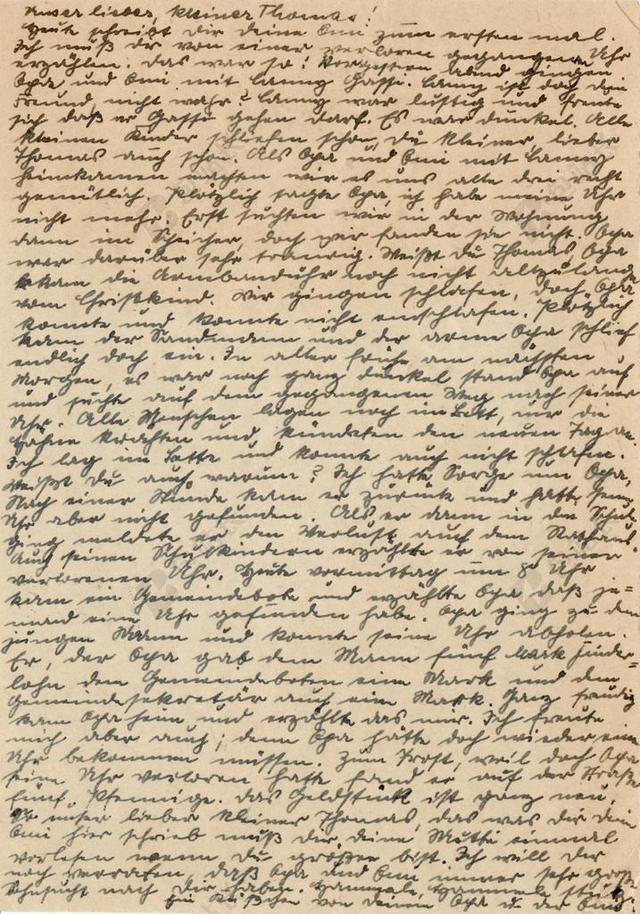 Unser lieber, kleiner Thomas!
Heute schreibt Dir deine Omi zum ersten mal.
Ich muß dir von einer verloren gegangenen Uhr
erzählen. Das war so: Vorgestern abend gingen
Opa, und Omi mit Lanny Gasse. Lanny ist doch dein
Freund, nicht wahr? Lanny war lustig und freute
sich daß er Gasse gehen darf. Es war dunkel. Alle
kleinen Kinder schliefen schon, du kleiner lieber
Thomas auch schon. Als Opa und Omi mit Lanny
heimkamen machten wir es uns alle drei recht
gemütlich. Plötzlich sagte Opa, ich habe meine Uhr
nicht mehr. Erst suchten wir in der Wohnung
dann im doch wir fanden sie nicht. Opa
war darüber sehr traurig. Weißt du Thomas, Opa
bekam die Armbanduhr noch nicht allzulange
vom Christkind. Wir gingen schlafen, doch Opa
konnte und konnte nicht einschlafen. Plötzlich
kam der Sandmann und der arme Opa schlief
endlich doch ein. In aller frühe am nächsten
Morgen, es war noch ganz dunkel stand Opa auf
und suchte auf dem gegangenen Weg nach seiner
Uhr. Alle Menschen lagen noch im Bett, nur die
Hähne krachten und kündeten den neuen Tag an.
Ich lag im Bette und konnte auch nicht schlafen.
Weißt du auch warum? Ich hatte Sorge um Opa,
Nach einer Stunde kam er zurück und hatte seine
Uhr aber nicht gefunden. Als er dann in die Schule
ging meldete er den Verlust auf dem Rathaus.
Auch seinen Schulkindern erzählte er von seiner
verlorenen Uhr. Heute vormittag um 8 Uhr
kam ein Gemeindebote und erzählte Opa daß je=
mand eine Uhr gefunden habe. Opa ging zu dem
jungen Mann und konnte seine Uhr abholen.
Er, der Opa gab dem Mann fünf Mark Finder=
lohn dem Gemeindeboten eine Mark und dem
Gemeindesekretär auch eine Mark. Ganz freudig
kam Opa heim und erzählte das mir. Ich freute
mich aber auch; denn Opa hätte doch wieder eine
Uhr bekommen müssen. Zum Trost, weil doch Opa
seine Uhr verloren hatte fand er auf der Straße
fünf Pfennige. Das Geldstück ist ganz neu.
unser lieber kleiner Thomas, das was dir dein
Omi hier schrieb muß dir deine Mutti einmal
vorlesen wenn du größer bist. Ich will dir
noch verraten, daß Opa und Omi immer sehr große
Sehnsucht nach Dir haben.
Ein Küßchen von deinem Opa u. der Omi.